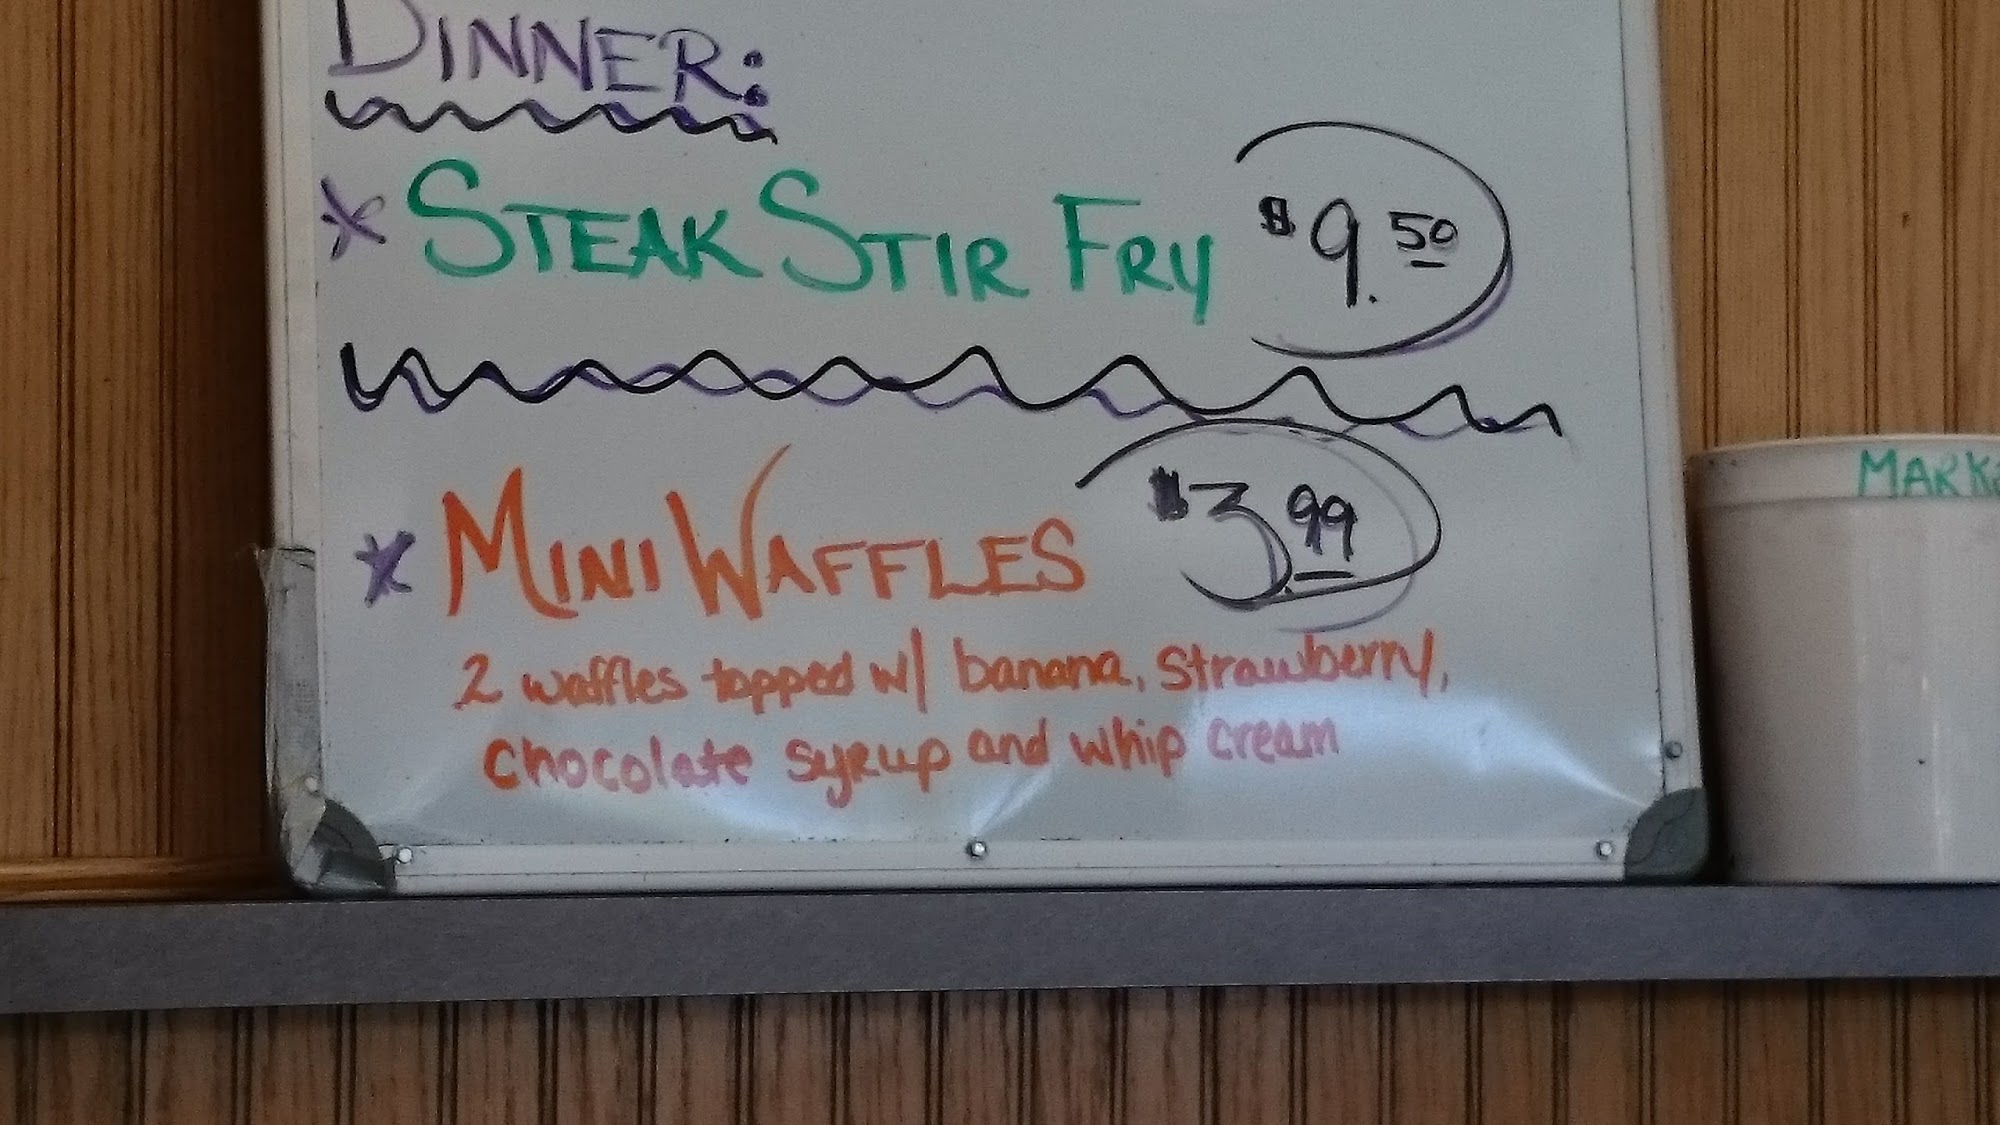 DINNER:
* STEAK STIR FRY $9.50
* MINI WAFFLES $3.99
2 waffles topped w/ banana, strawberry,
chocolate syrup and whip cream